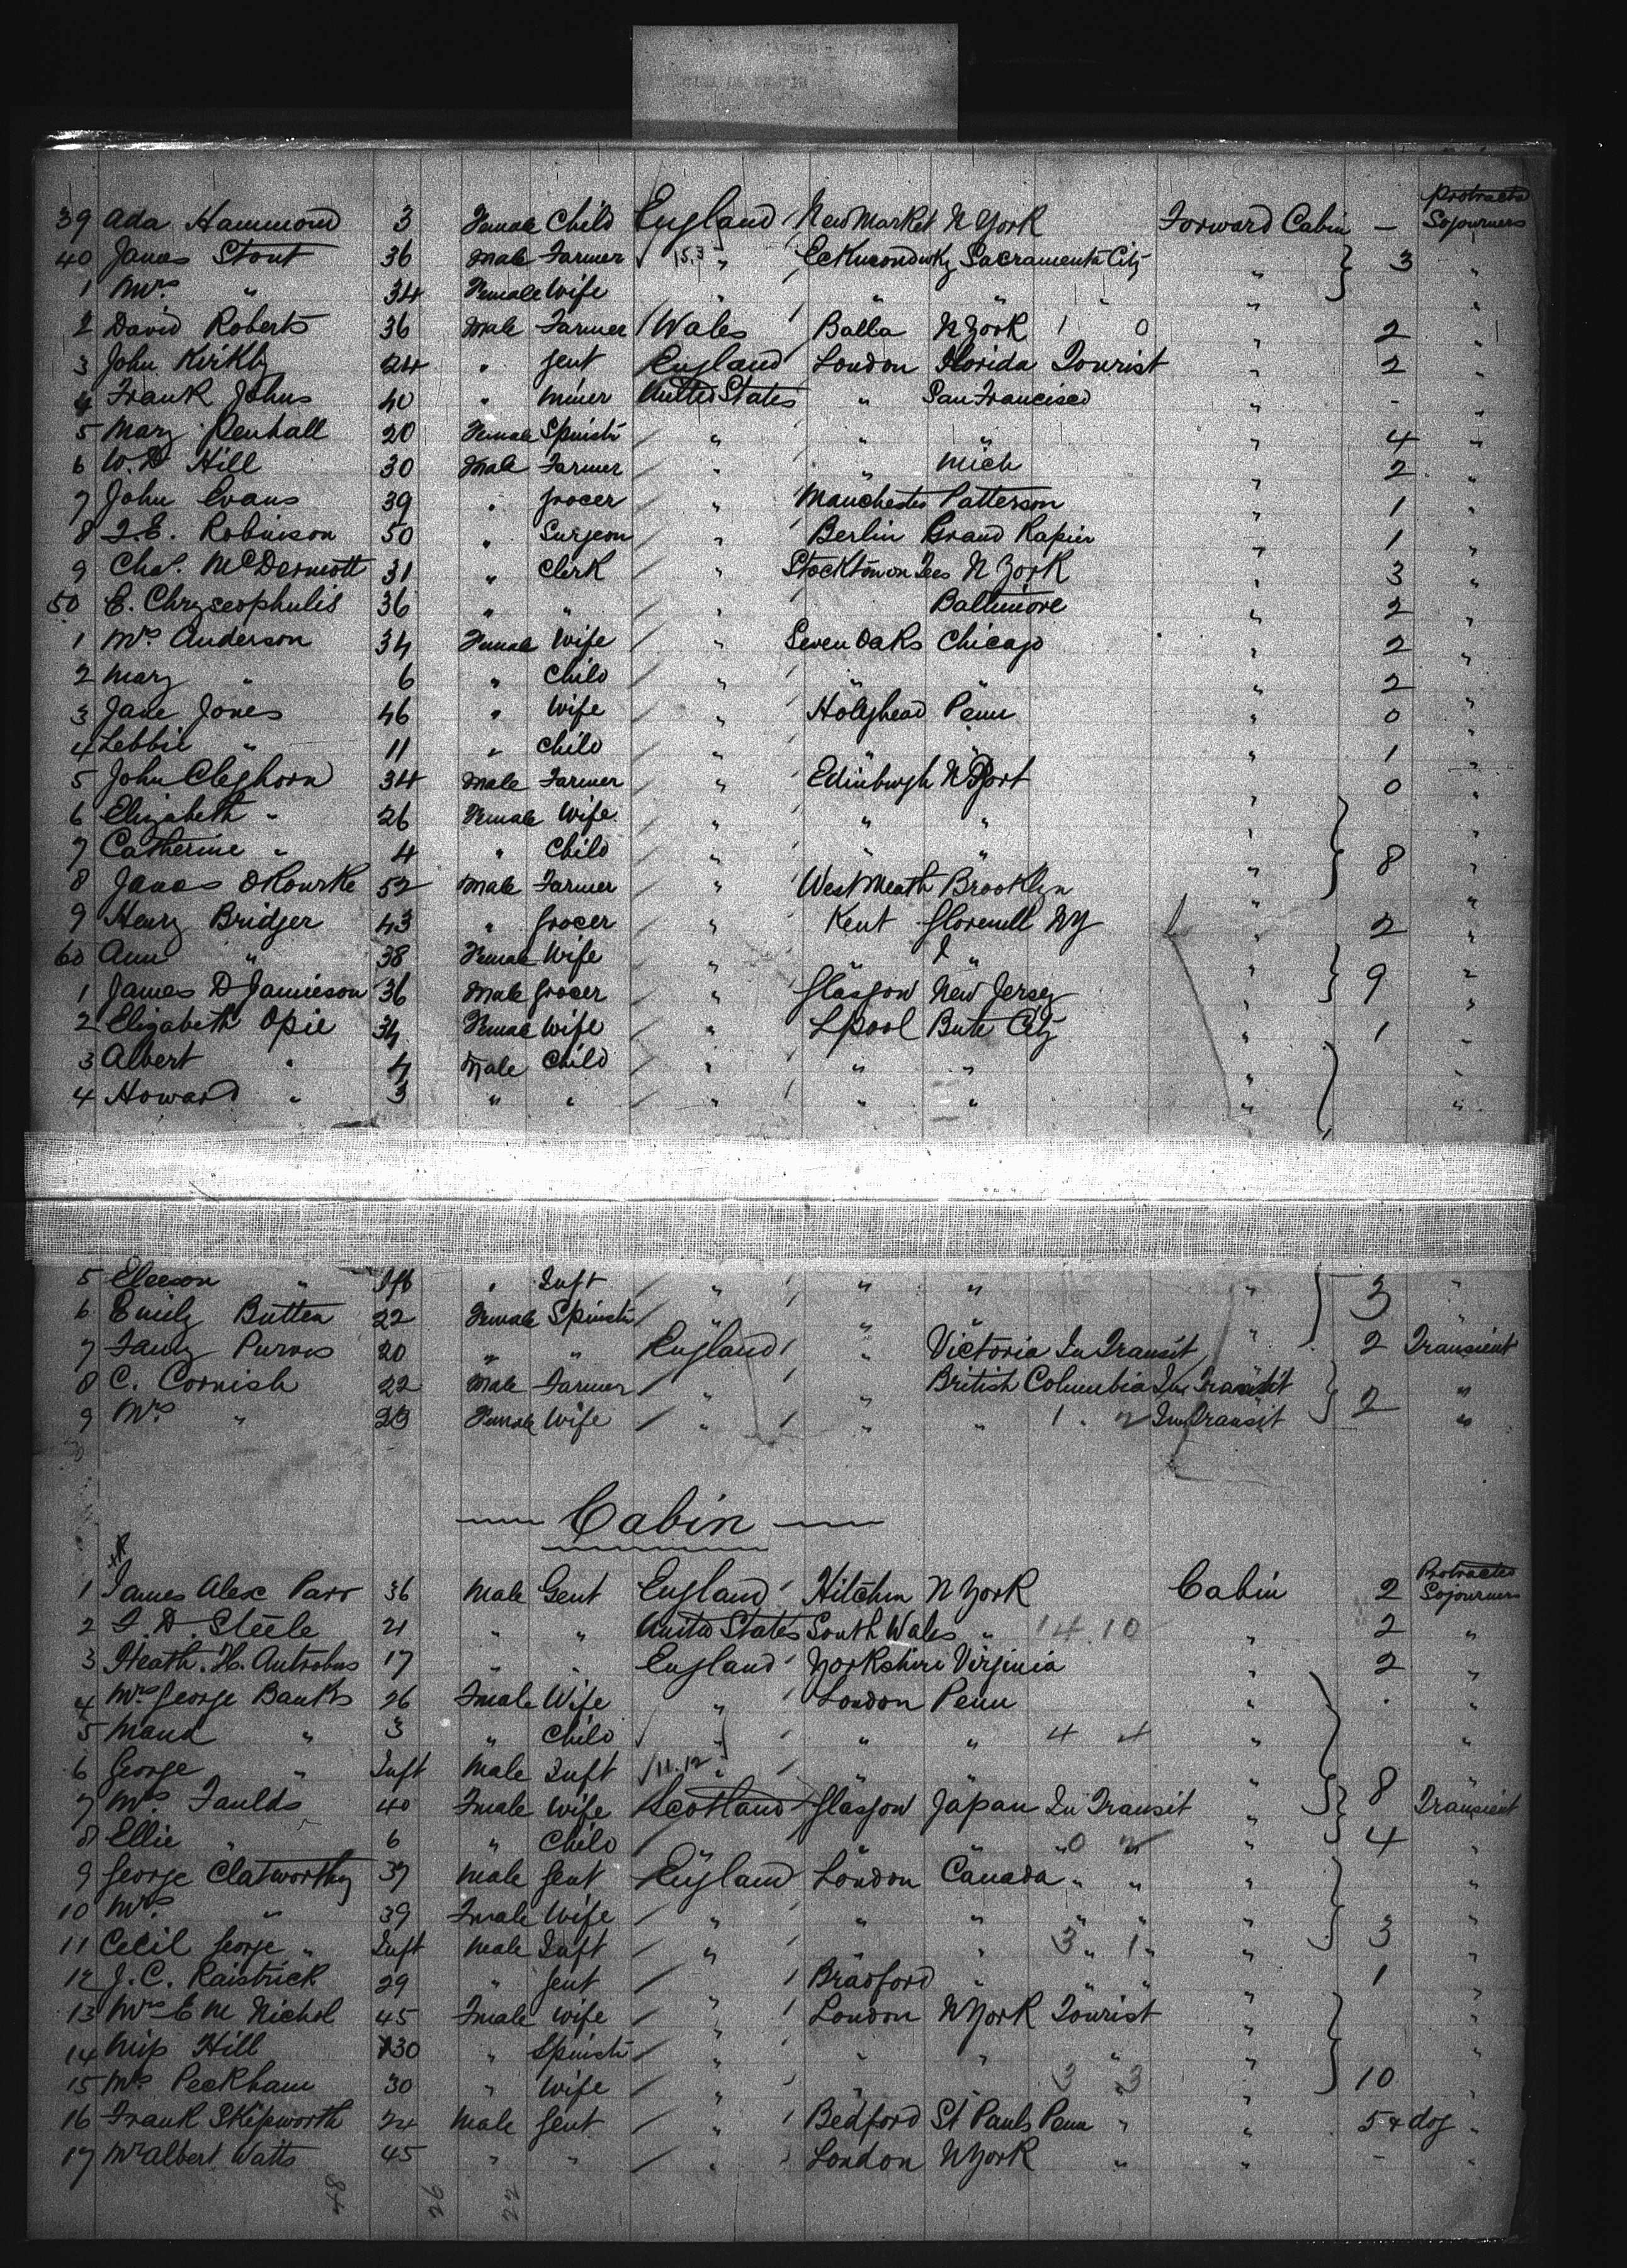 Protracted
39 Ada Hammond 3 Female Child England New Market N York Forward Cabin — Sojourners
40 James Stout 36 Male Farmer " Sacramento City " 3 "
1 Mrs " 34 Female Wife " " " " "
2 David Roberts 36 Male Farmer Wales Balla N York 1 0 " 2 "
3 John Kirkby 24 " Gent England London Florida Tourist " 2 "
4 Frank Johns 40 " Miner United States " San Francisco " - "
5 Mary Penhall 20 Female Spinstr " " " " 4 "
6 W. H Hill 30 Male Farmer " " Mich " 2 "
7 John Evans 39 " Grocer " Manchester Patterson " 1 "
8 Robinson 50 " Surgeon " Berlin Grand Rapier " 1 "
9 Chas. McDermott 31 " Clerk " Stockton on Tees N York " 3 "
50 E. Chrysephulis 36 " " " Baltimore " 2 "
1 Mrs Anderson 34 Female Wife " Seven Oaks Chicago " 2 "
2 Mary " 6 " Child " " " " 2 "
3 Jane Jones 46 " Wife " Holyhead Penn " 0 "
4 Lebbie " 11 " Child " " " " 1 "
5 John Cleghorn 34 Male Farmer " Edinburgh N Port " 0 "
6 Elizabeth " 26 Female Wife " " " " "
7 Catherine " 4 " Child " " " " 8 "
8 James O'Rourke 52 Male Farmer " West Meath Brooklyn " "
9 Henry Bridger 43 " Grocer " Kent NY 2 "
60 Ann " 38 Female Wife " " " " "
1 James D Jamieson 36 Male Grocer " Glasgow New Jersey " 9 "
2 Elizabeth Opie 34 Female Wife " Lpool Bute City " 1 "
3 Albert " 4 Male Child " " " " "
4 Howard " 3 " " " " " " "
5 Eleeson " " Inft " " " " 3 "
6 Emily Butten 22 Female Spinstr " " "
7 Fanny Purves 20 " " England " Victoria In Transit 2 Transient
8 C. Cornish 22 Male Farmer " " British Columbia In Transit 2 "
9 Mrs " 23 Female Wife " " " 1 . 2 In Transit "
Cabin
Protracted
1 James Alex Parr 36 Male Gent England Hitchin N York Cabin 2 Sojourners
2 F. D. Steele 21 " " United States South Wales " 14 10 " 2 "
3 Heath. H. Antrobus 17 " " England Yorkshire Virginia " 2 "
4 Mrs George Banks 26 Fmale Wife " London Penn " . "
5 Maud " 3 " Child " " " 4 4 " "
6 George " Inft Male Inft 11.12 " " " " "
7 Mrs Faulds 40 Fmale Wife Scotland Glasgow Japan In Transit " 8 Transient
8 Ellie " 6 " Child " " " 0 2 " 4 "
9 George Clatworthy 37 Male Gent England London Canada " " " "
10 Mrs " 39 Fmale Wife " " " " " " "
11 Cecil George " Inft Male Inft " " 3 " 1 " " 3 "
12 J. C. Raistrick 29 " Gent " Bradford " " " 1 "
13 Mrs E M Nichol 45 Fmale Wife " London N York Tourist " "
14 Miss Hill 30 " Spinstr " " " " " "
15 Mrs Peckham 30 " Wife " " 3 3 " 10 "
16 Frank Skipworth 24 Male Gent " Bedford St Pauls Penn " " 5 & dog "
17 Mr Albert Watts 45 " " " London N York " " - "
84 26 22